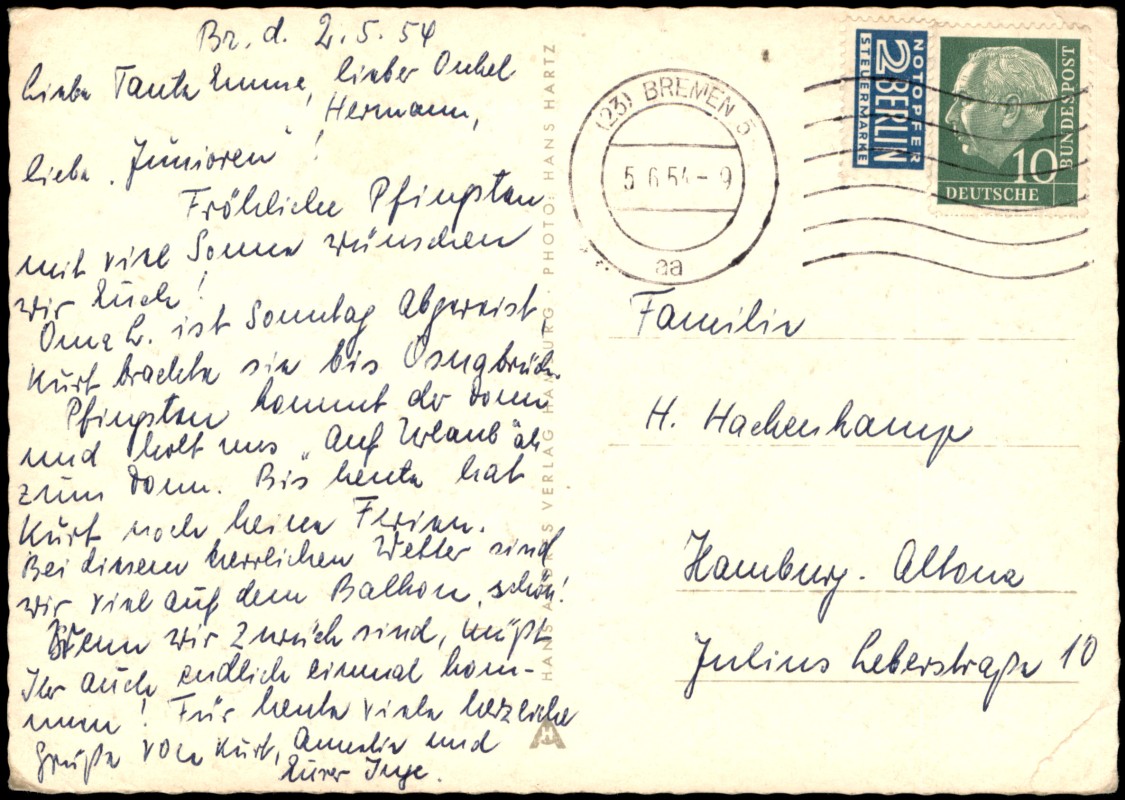 Br. d. 2.5.54
Liebe Tante Emma, lieber Onkel
Hermann,
liebe „Junioren"!
Fröhliche Pfingsten
mit viel Sonne wünschen
wir Euch!
Oma L. ist Sonntag abgereist,
Kurt brachte sie bis Osnabrück.
Pfingsten kommt der Dom
und holt uns „auf Urlaub" ab
zum Dom. Bis heute hat
Kurt noch keine Ferien.
Bei diesem herrlichen Wetter sind
wir viel auf dem Balkon, schön!
Wenn wir zurück sind, müßt
Ihr auch endlich einmal kom-
men! Für heute viele herzliche
Grüße von Kurt, Amelie und
Eurer Inge.
HANS ANDRES VERLAG HAMBURG · PHOTO: HANS HARTZ
HA
(23) BREMEN 5
5.6.54-9
aa
NOTOPFER
2 BERLIN
STEUERMARKE
10
DEUTSCHE
BUNDESPOST
Familie
H. Hackenkamp
Hamburg-Altona
Julius Leberstraße 10